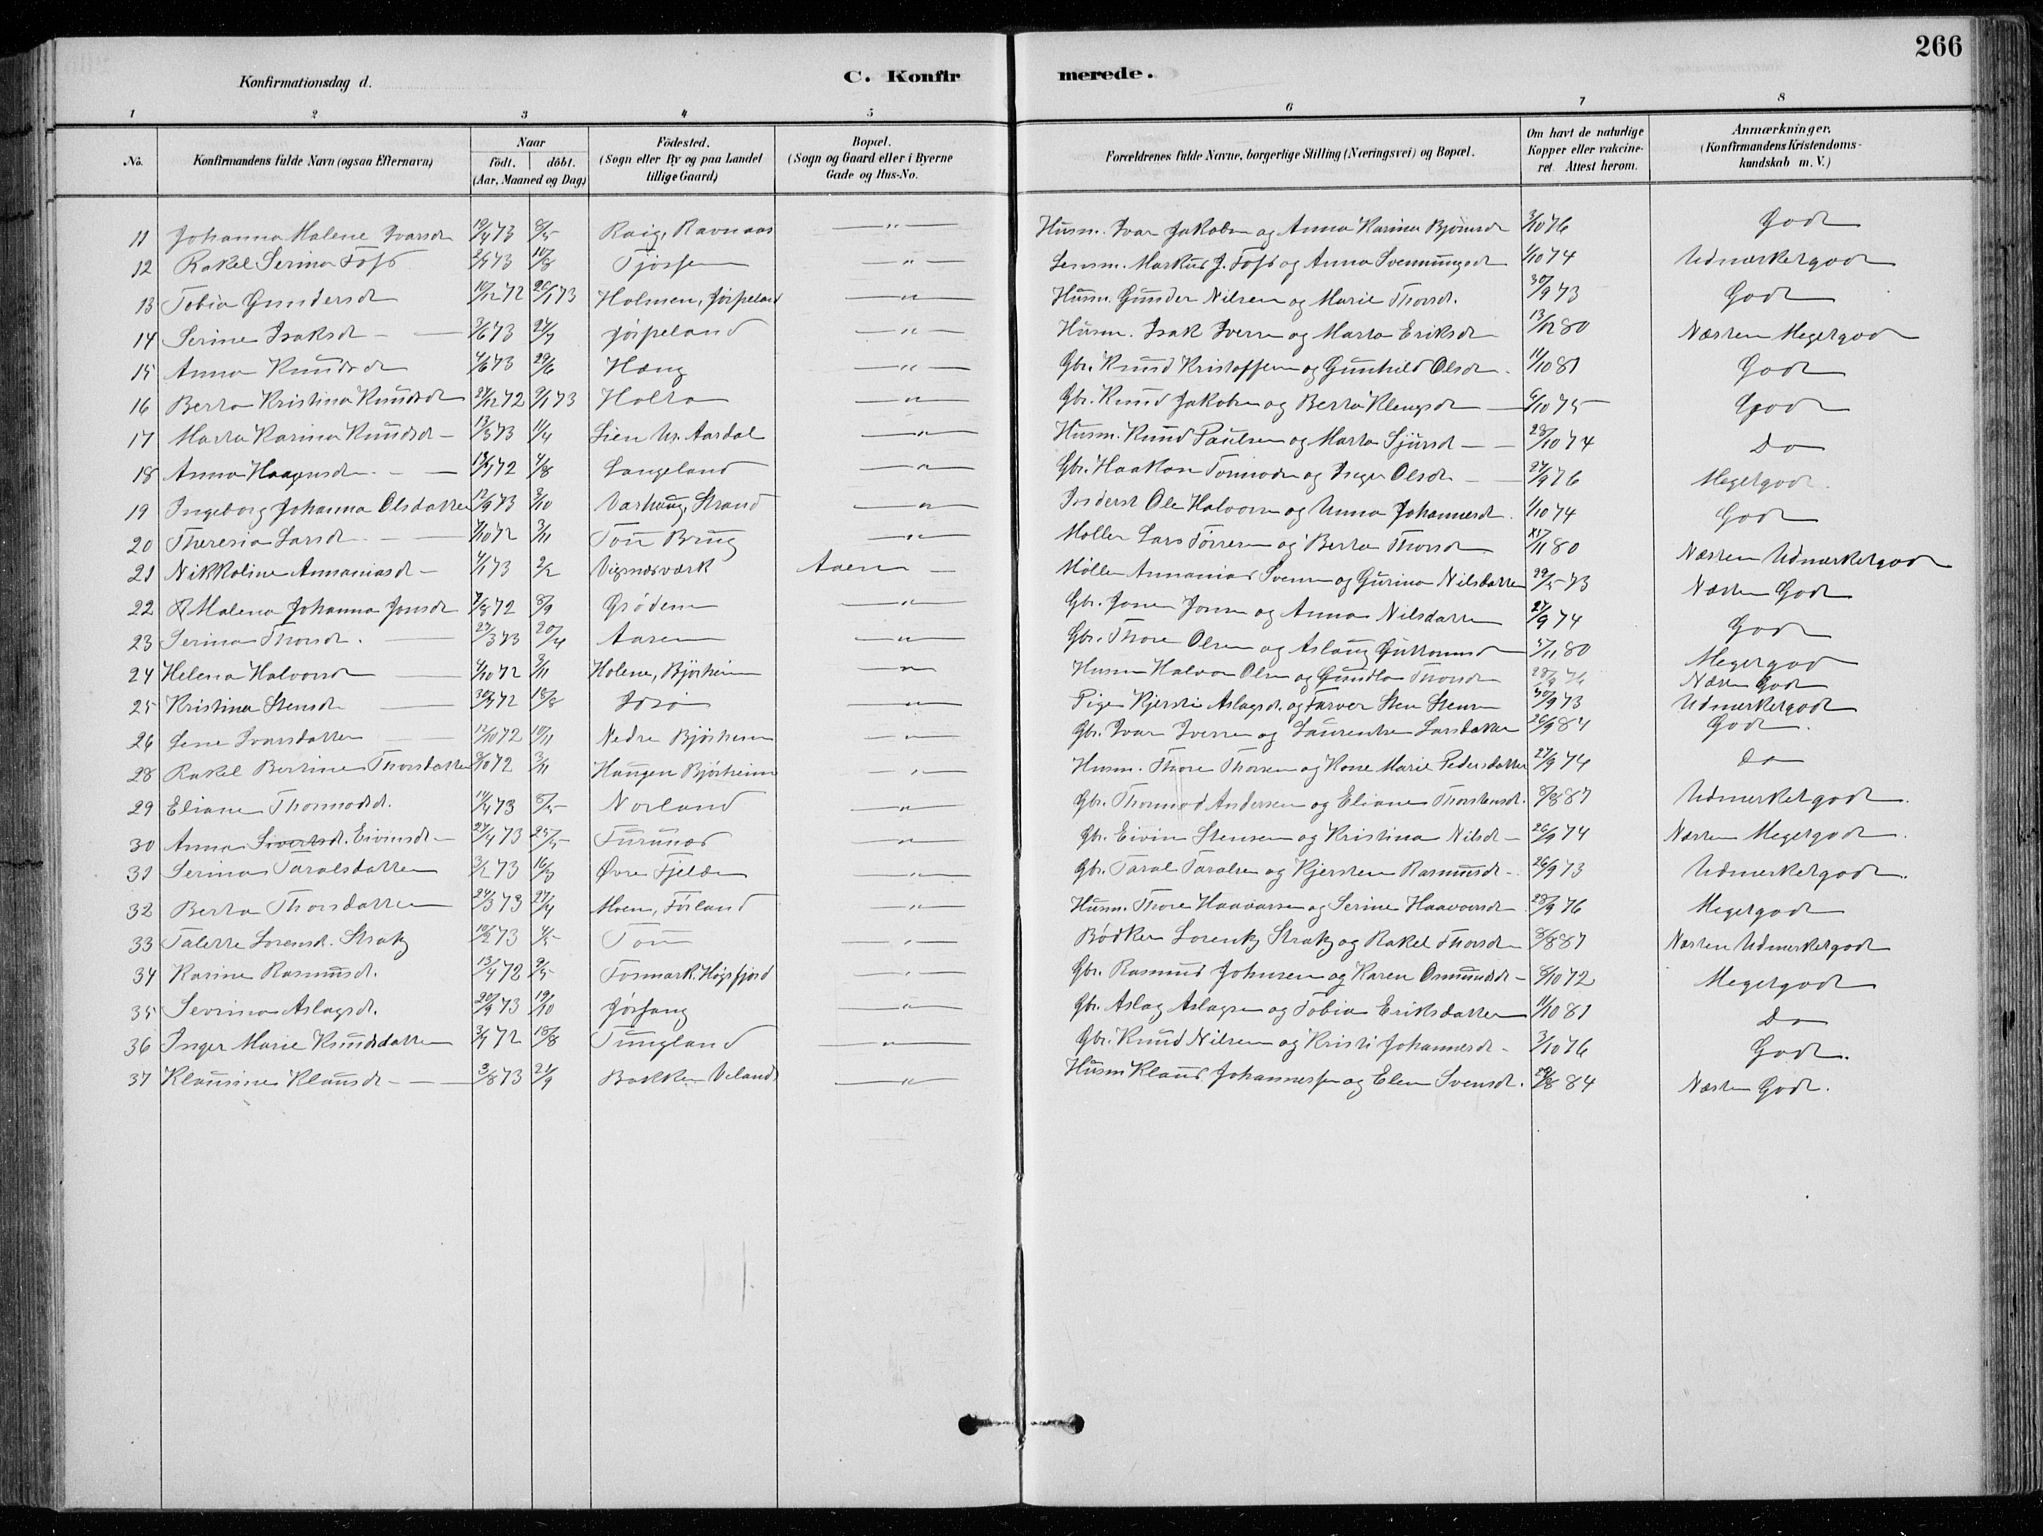 266
Konfirmationsdag d. C. Konfirmerede.
1 2 3 4 5 6 7 8
No. Konfirmandens fulde Navn (ogsaa Efternavn) Naar født. døbt. (Aar, Maaned og Dag) Fødested. (Sogn eller By og paa Landet tillige Gaard) Bopæl. (Sogn og Gaard eller i Byerne Gade og Hus-No. Forældrenes fulde Navne, borgerlige Stilling (Næringsvei) og Bopæl. Om havt de naturlige Kopper eller vakcineret. Attest herom. Anmærkninger. (Konfirmandens Kristendomskundskab m. V.)
11 Johanna Malene Ivarsdr 19/4 73 8/5 Raig, Ravnaas — " — Husm. Ivar Jakobsen og Anna Karina Bjørnsdr 3/10 76 Godt
12 Rakel Serina Foss 2/7 73 10/8 Tjøssem — " — Lensm. Markus J. Foss og Anna Svenningsdr 1/10 74 Udmerketgodt
13 Tobia Gundersdr 10/12 72 26/1 73 Holmen, Jørpeland — " — Husm. Gunder Nilsen og Marie Thorsdr. 30/9 73 Godt
14 Serine Isaksdr — 3/6 73 27/7 Jørpeland — " — Husm. Isak Iversen og Marta Eriksdr 13/12 80 Næsten Megetgodt
15 Anna Knudsdr 4/6 73 29/6 Hæng — " — Gbr. Knud Kristoffersen og Gunhild Olsdr. 11/10 81 Godt
16 Berta Kristina Knudsdr 27/12 72 9/1 73 Holta — " — Gbr. Knud Jakobsen og Berta Klengsdr — 6/10 75 Godt
17 Marta Karina Knudsdr — 13/3 73 11/4 Lien Nr. Aardal — " — Husm. Knud Paulsen og Marta Sjursdr — 28/10 74 Do
18 Anna Haagensdr. — 72 4/8 Langeland — " — Gbr. Haakon Tormodsen og Inger Olsdr — 27/9 76 Megetgodt.
19 Ingeborg Johanna Olsdatter 12/9 73 3/10 Varhaug Strand — " — Inderst Ole Halvorsen og Anna Johannesdr. 1/10 74 Godt
20 Theresia Larsdr. — 7/10 72 3/11 Tou Brug — " — Møller Lars Tørresen og Berta Thorsdr /11 80 Næsten Udmerketgodt
21 Nikkoline Annaniasdr — 4/1 73 2/2 Vigsnesværk Aaen — Møller Annanias Svensen og Gurina Nilsdatter 29/5 73 Næsten Godt
22 Malena Johanna Jonsdr 7/8 72 8/9 Grødem — " — Gbr. Jone Jonsen og Anna Nilsdatter 27/9 74 Godt
23 Serina Thorsdr. — 27/3 73 20/4 Aaren — " — Gbr. Thore Olsen og Aslaug Guttormsdr /11 80 Megetgodt
24 Helena Halvorsdr 4/10 72 3/11 Holene, Bjørheim — " — Husm Halvor Olsen og Gundla Thorsdr 28/9 76 Næsten Godt
25 Kristina Stensdr — 30/7 72 18/8 Idsø — " — Pigen Kjersti Aslagsdr. og Farver Sten Stensen 30/9 73 Udmerketgodt
26 Lene Ivarsdatter — 12/10 72 10/11 Nedre Bjørheim — " — Gbr. Ivar Iversen og Laurentse Larsdatter 26/9 84 Godt.
28 Rakel Bertine Thorsdatter 3/10 72 3/11 Haugen Bjørheim — " — Husm. Thore Thorsen og Kone Marie Pedersdatter 27/9 74 Do
29 Eliane Thormodsdr. 14/4 73 8/5 Norland — " — Gbr. Thormod Andersen og Eliane Thorstensdr. 8/8 87 Udmerketgodt.
30 Anna Sivertsdr. Eivinsdr — 27/4 73 25/5 Furunes — " — Gbr. Eivin Stensen og Kristina Nilsdr — 26/9 74 Næsten Megetgodt.
31 Serina Taralsdatter 3/2 73 16/3 Øvre Fjelde — " — Gbr. Taral Taralsen og Kjersten Rasmusdr — 26/9 73 Udmerketgodt.
32 Berta Thorsdatter 24/3 73 27/4 Moen, Førland — " — Husm. Thore Haavarsen og Serine Haavorsdr 28/9 76 Megetgodt
33 Talette Lorensdr. Stratz 19/2 73 4/5 Tou — " — Bødker Lorentz Stratz og Rakel Thorsdr — 8/8 87 Næsten Udmerketgodt
34 Karine Rasmusdr. 13/4 72 9/5 Fosmark. Høgsfjord — " — Gbr. Rasmus Johnsen og Karen Osmundsdr — 8/10 72 Megetgodt
35 Sevrina Aslagsdr. 20/9 73 19/10 Jøsang — " — Gbr. Aslag Aslagsen og Tobia Eriksdatter 11/10 81 Do
36 Inger Marie Knudsdatter 3/7 72 18/8 Tungland — " — Gbr. Knud Nilsen og Kristi Johannesdr — 3/10 76 Godt.
37 Klausine Klausdr — 3/8 73 21/9 Bakken Veland — " — Husm Klaus Johannessen og Elen Svensdr. 29/8 84 Næsten Godt.